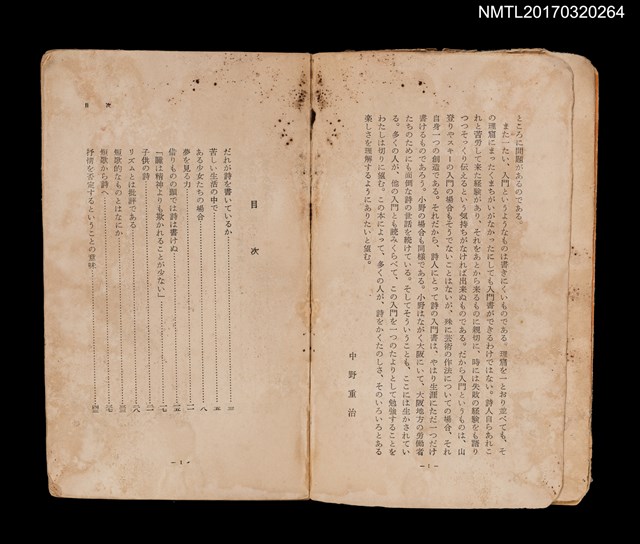 NMTL20170320264
ところに問題があるのである。
また一たい、入門というようなものは書きにくいものである。理窟を一とおり並べても、そ
の理窟にまったくまちがいがなかったにしても入門書ができるわけではない。詩人自らあれこ
れと苦労して来た経験があり、それをあとから来るものに親切に、時には失敗の経験をも語り
つつそっくり伝えるという気持ちがなければ出来ぬものである。だから入門というものは、山
登りやスキーの入門の場合もそうでないことはないが、殊に芸術の作法についての場合、それ
自身一つの創造である。それだから、詩人にとって詩の入門書は、やはり生涯にただ一つだけ
書けるものであろう。小野の場合も同様である。小野はながく大阪にいて、大阪地方の労働者
たちのためにも面倒な詩の世話を続けている。そしてそういうことも、ここには生かされてい
る。多くの人が、他の入門とも読みくらべて、この入門を一つのたよりとして勉強することを
わたしは切りに望む。この本によって、多くの人が、詩をかくたのしさ、そのいろいろとある
楽しさを理解するようにありたいと望む。
中野重治
目次
だれが詩を書いているか
苦しい生活の中で
ある少女たちの場合
夢を見る力
借りものの頭では詩は書けぬ
「腕は精神よりも欺かれることが少ない」
子供の詩
リズムとは批評である
短歌的なものとはなにか
短歌から詩へ
抒情を否定するということの意味
目次